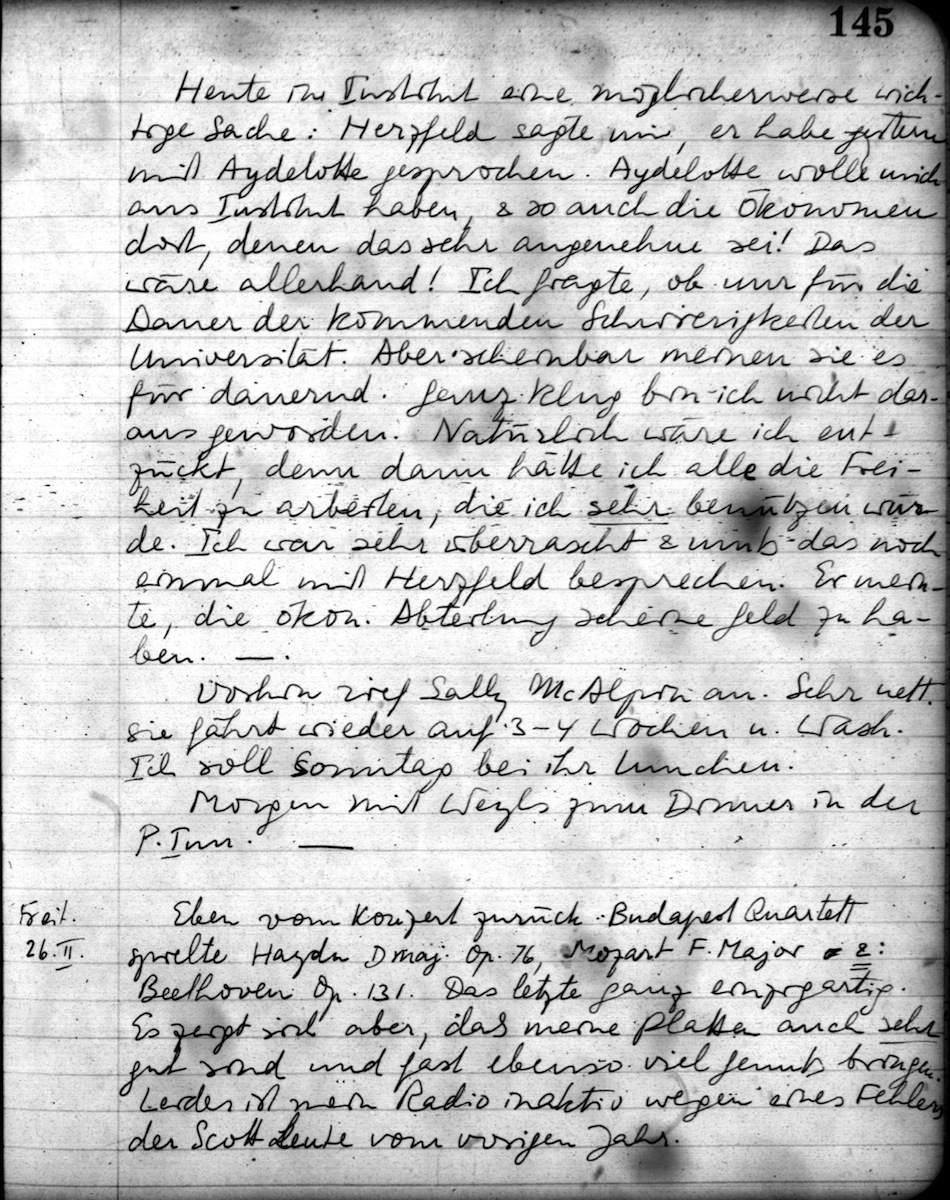 145
Heute im Institut eine möglicherweise wich-
tige Sache: Herzfeld sagte mir, er habe gestern
mit Aydelotte gesprochen. Aydelotte wolle mich
ans Institut haben, & so auch die Ökonomen
dort, denen das sehr angenehm sei! Das
wäre allerhand! Ich fragte, ob nur für die
Dauer der kommenden Schwierigkeiten der
Universität. Aber scheinbar meinen sie es
für dauernd. Ganz klug bin ich nicht dar-
aus geworden. Natürlich wäre ich ent-
zückt, denn dann hätte ich alle die Frei-
heit zu arbeiten, die ich sehr benützen wür-
de. Ich war sehr überrascht & muß das noch
einmal mit Herzfeld besprechen. Er mein-
te, die ökon. Abteilung scheine Geld zu ha-
ben. —.
Vorhin rief Sally McAlpin an. Sehr nett.
sie fährt wieder auf 3-4 Wochen n. Wash.
Ich soll Sonntag bei ihr lunchen.
Morgen mit Weyls zum Dinner in der
P. Inn. —
Freit.
26.II.
Eben vom Konzert zurück. Budapest Quartett
spielte Haydn D maj. Op. 76, Mozart F. Major &:
Beethoven Op. 131. Das letzte ganz einzigartig.
Es zeigt sich aber, das meine Platten auch sehr
gut sind und fast ebenso viel Genuß bringen.
Leider ist mein Radio inaktiv wegen eines Fehlers
der Scott Leute vom vorigen Jahr.